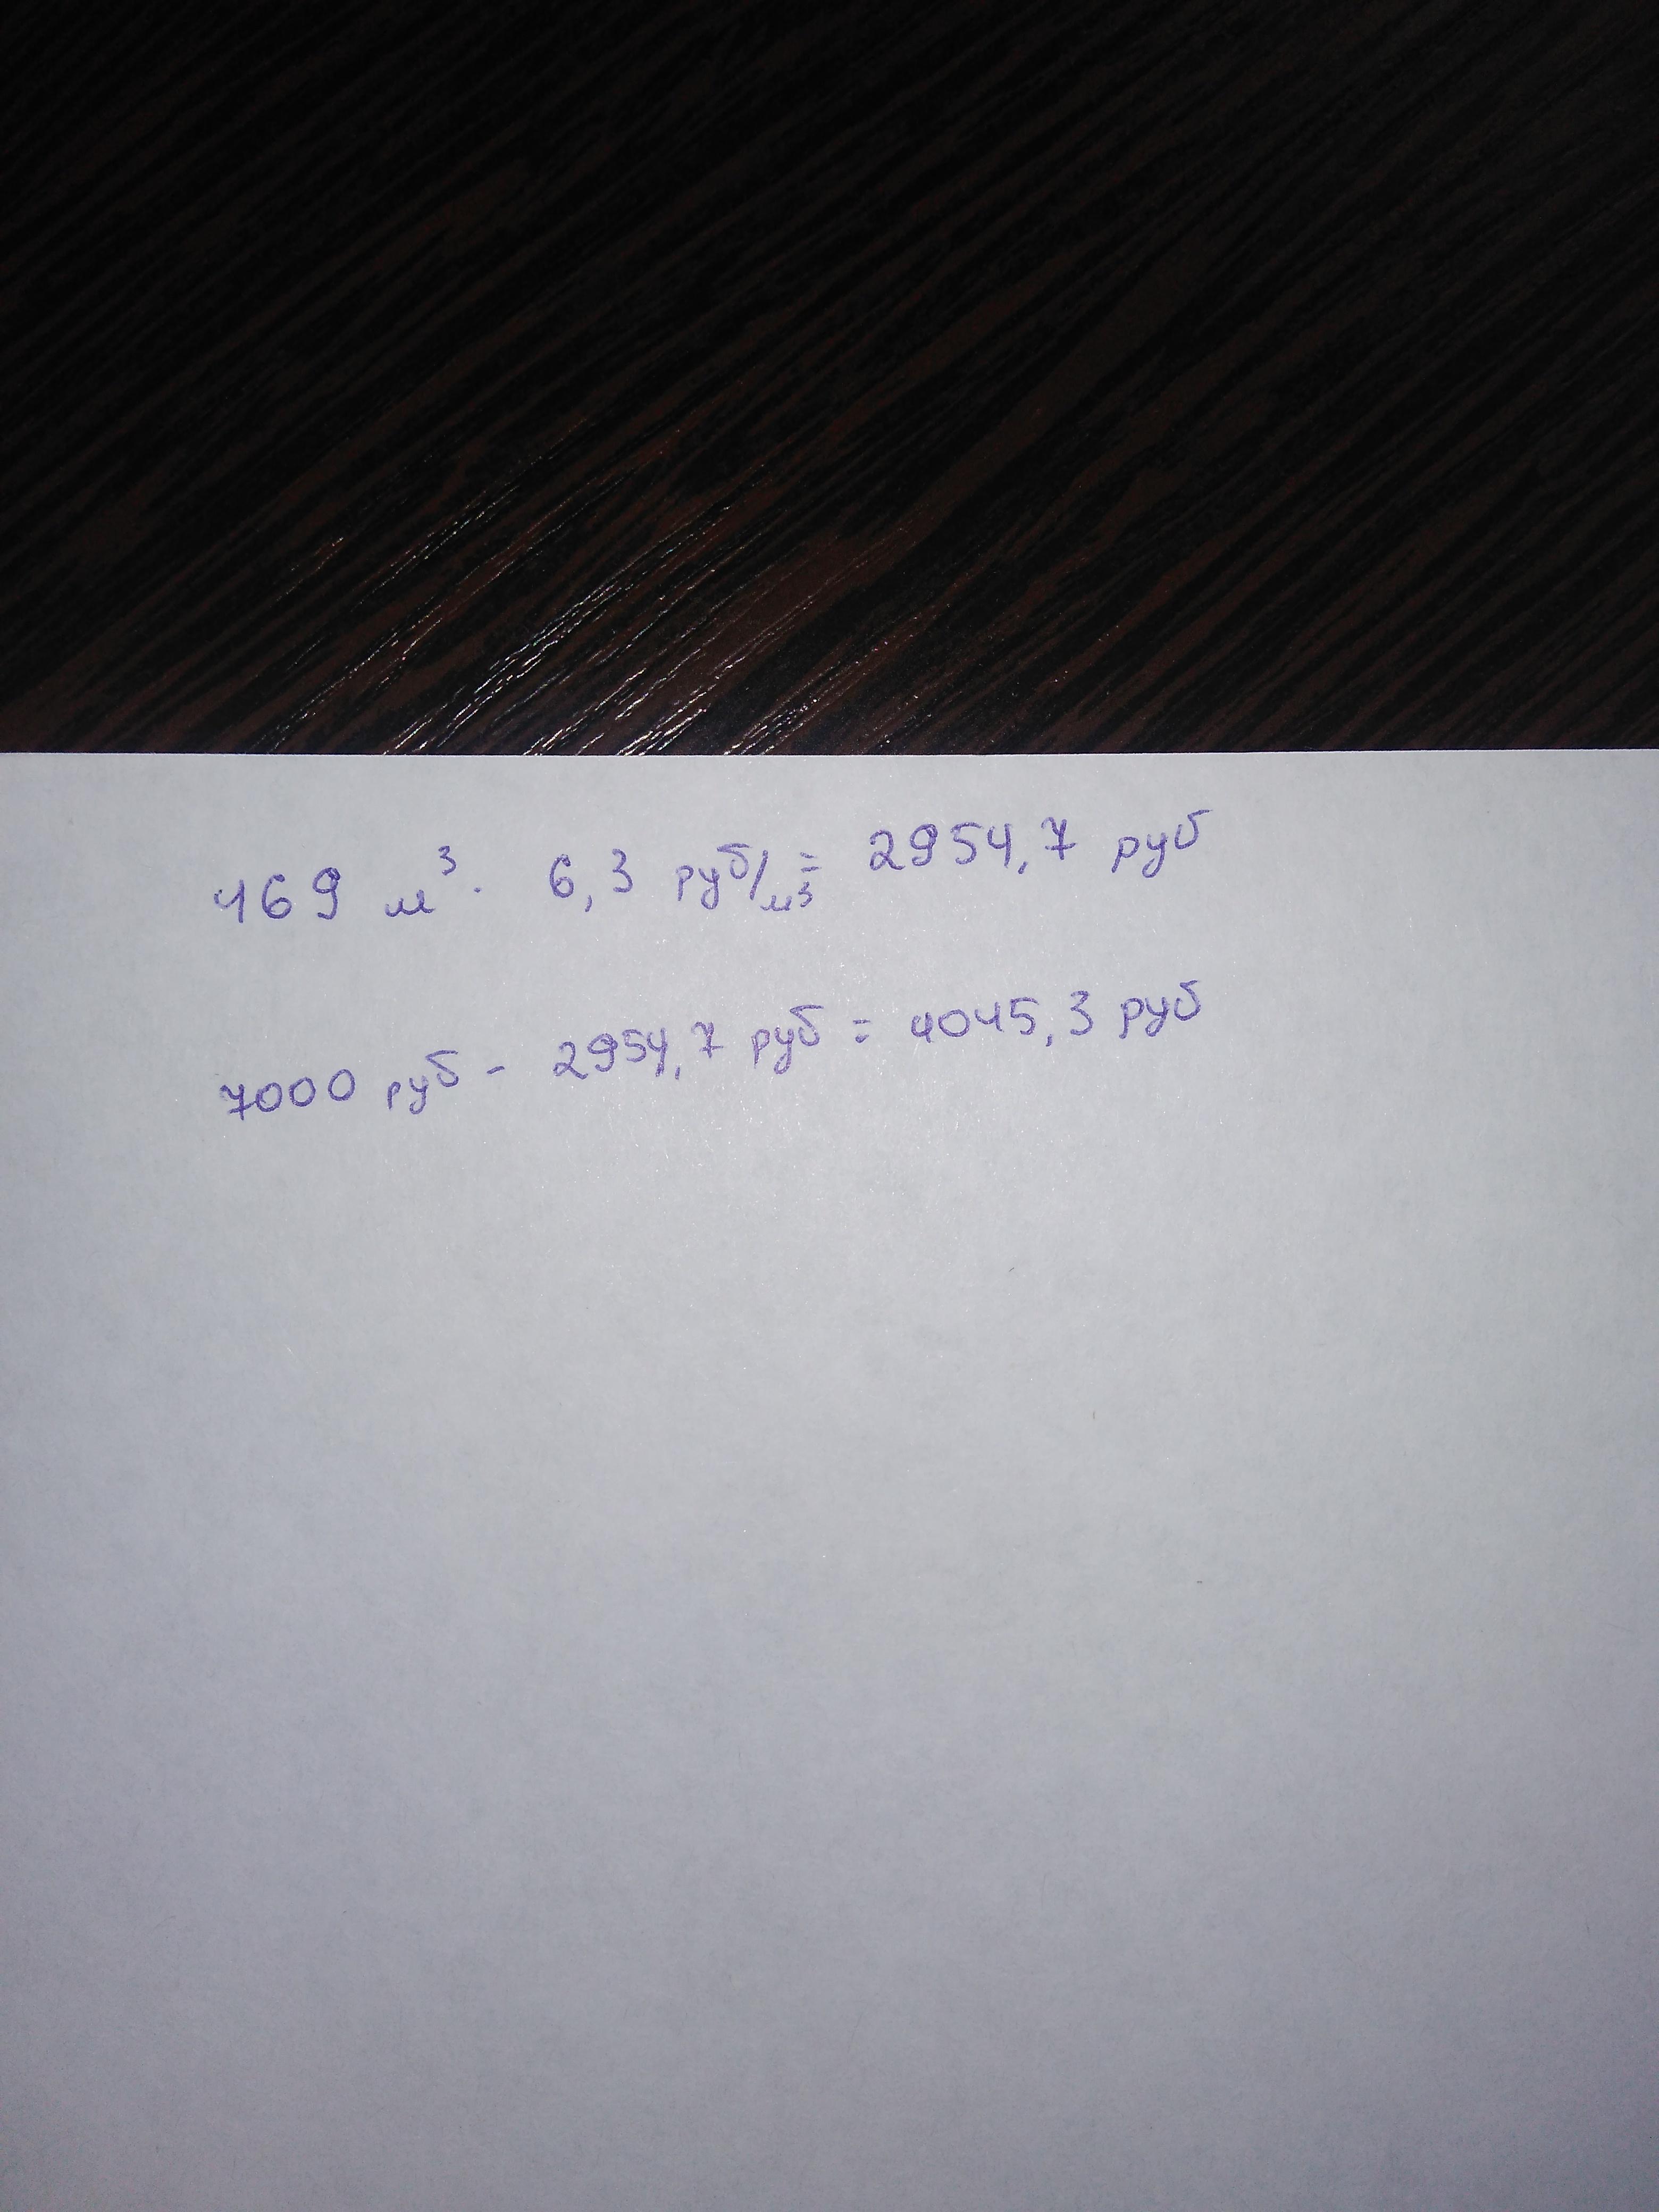 469 м³ · 6,3 руб/м³ = 2954,7 руб
7000 руб - 2954,7 руб = 4045,3 руб